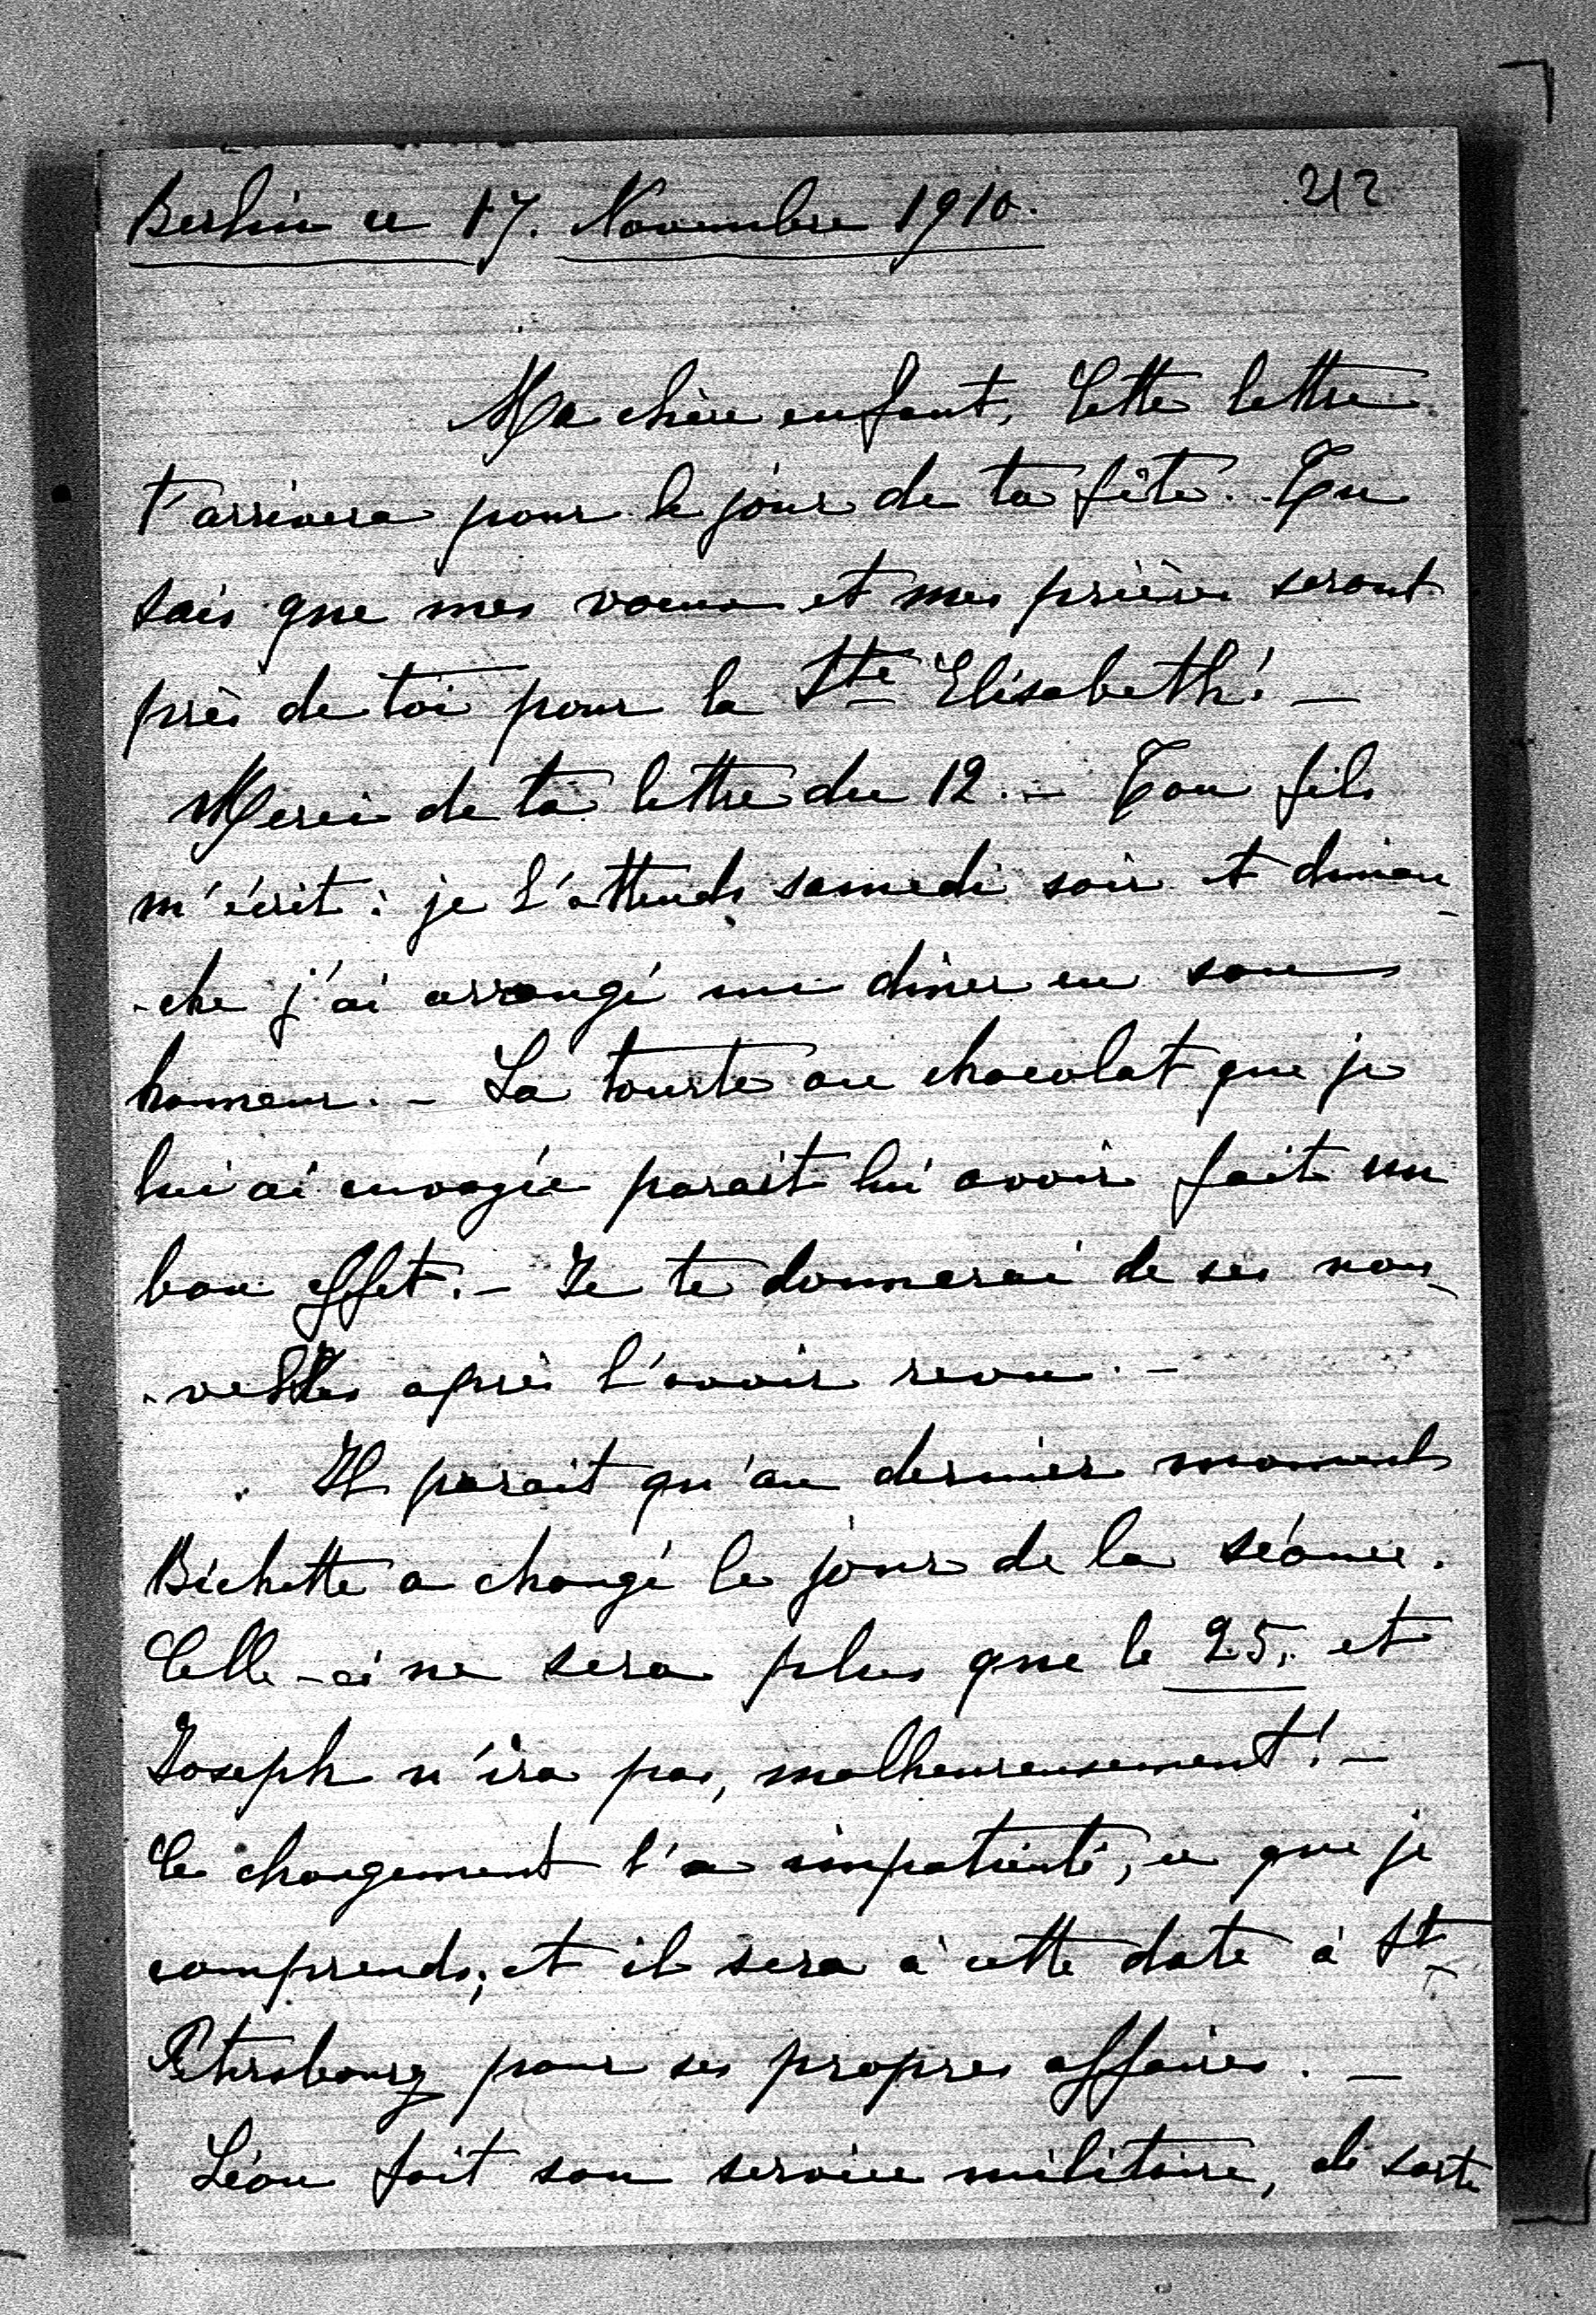 Berlin ce 17. Novembre 1910.
212
Ma chère enfant, Cette lettre
t'arrivera pour le jour de ta fête. Tu
sais que mes voeux et mes prières seront
près de toi pour la Ste Elisabeth! —
Merci de ta lettre du 12. — Ton fils
m'écrit: je l'attends samedi soir et diman-
-che j'ai arrangé un diner en son
honneur. — La tourte au chocolat que je
lui ai envoyée parait lui avoir fait un
bon effet. — Je te donnerai de ses nou-
-velles après l'avoir revu. —
Il parait qu'au dernier moment
Bichette a changé le jour de la séance.
Celle-ci ne sera plus que le 25. et
Joseph n'ira pas, malheureusement! —
Ce changement l'a impatienté, ce que je
comprends; et il sera à cette date à St
Petersbourg pour ses propres affaires. —
Léon fait son service militaire, de sorte